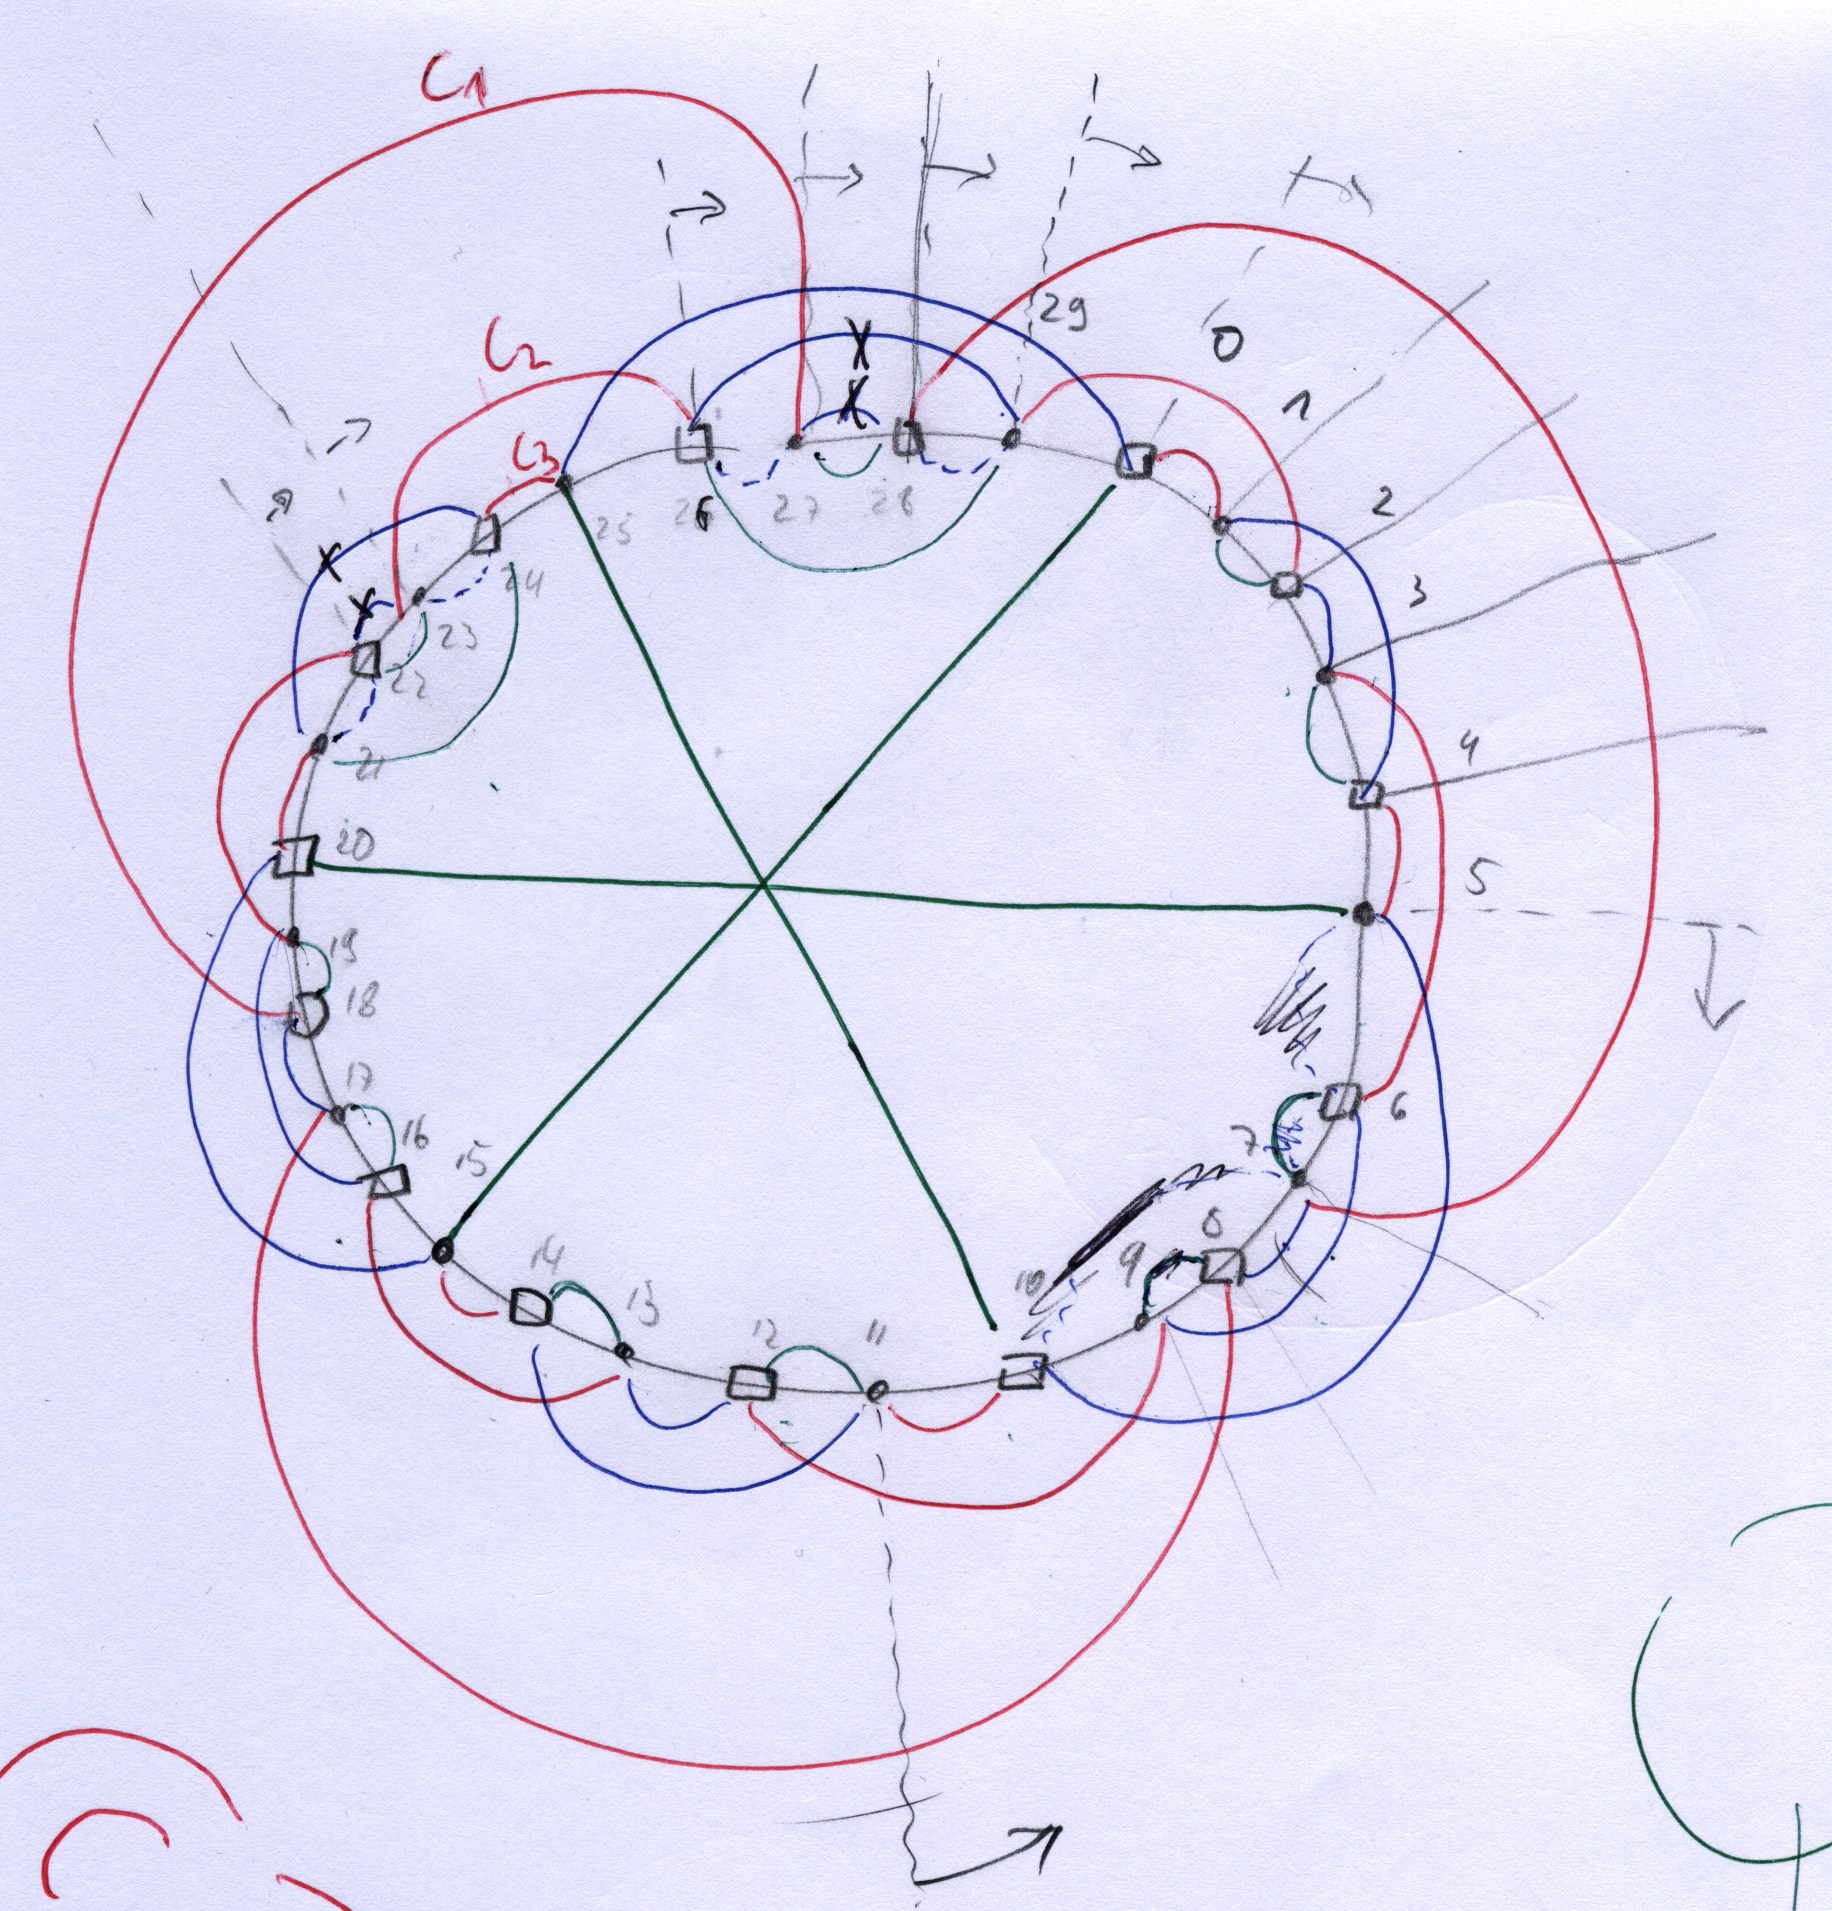 C1
C2
C3
29
0
1
2
3
4
5
6
7
8
9
10
11
12
13
14
15
16
17
18
19
20
21
22
23
24
25
26
27
28
X
X
X
X